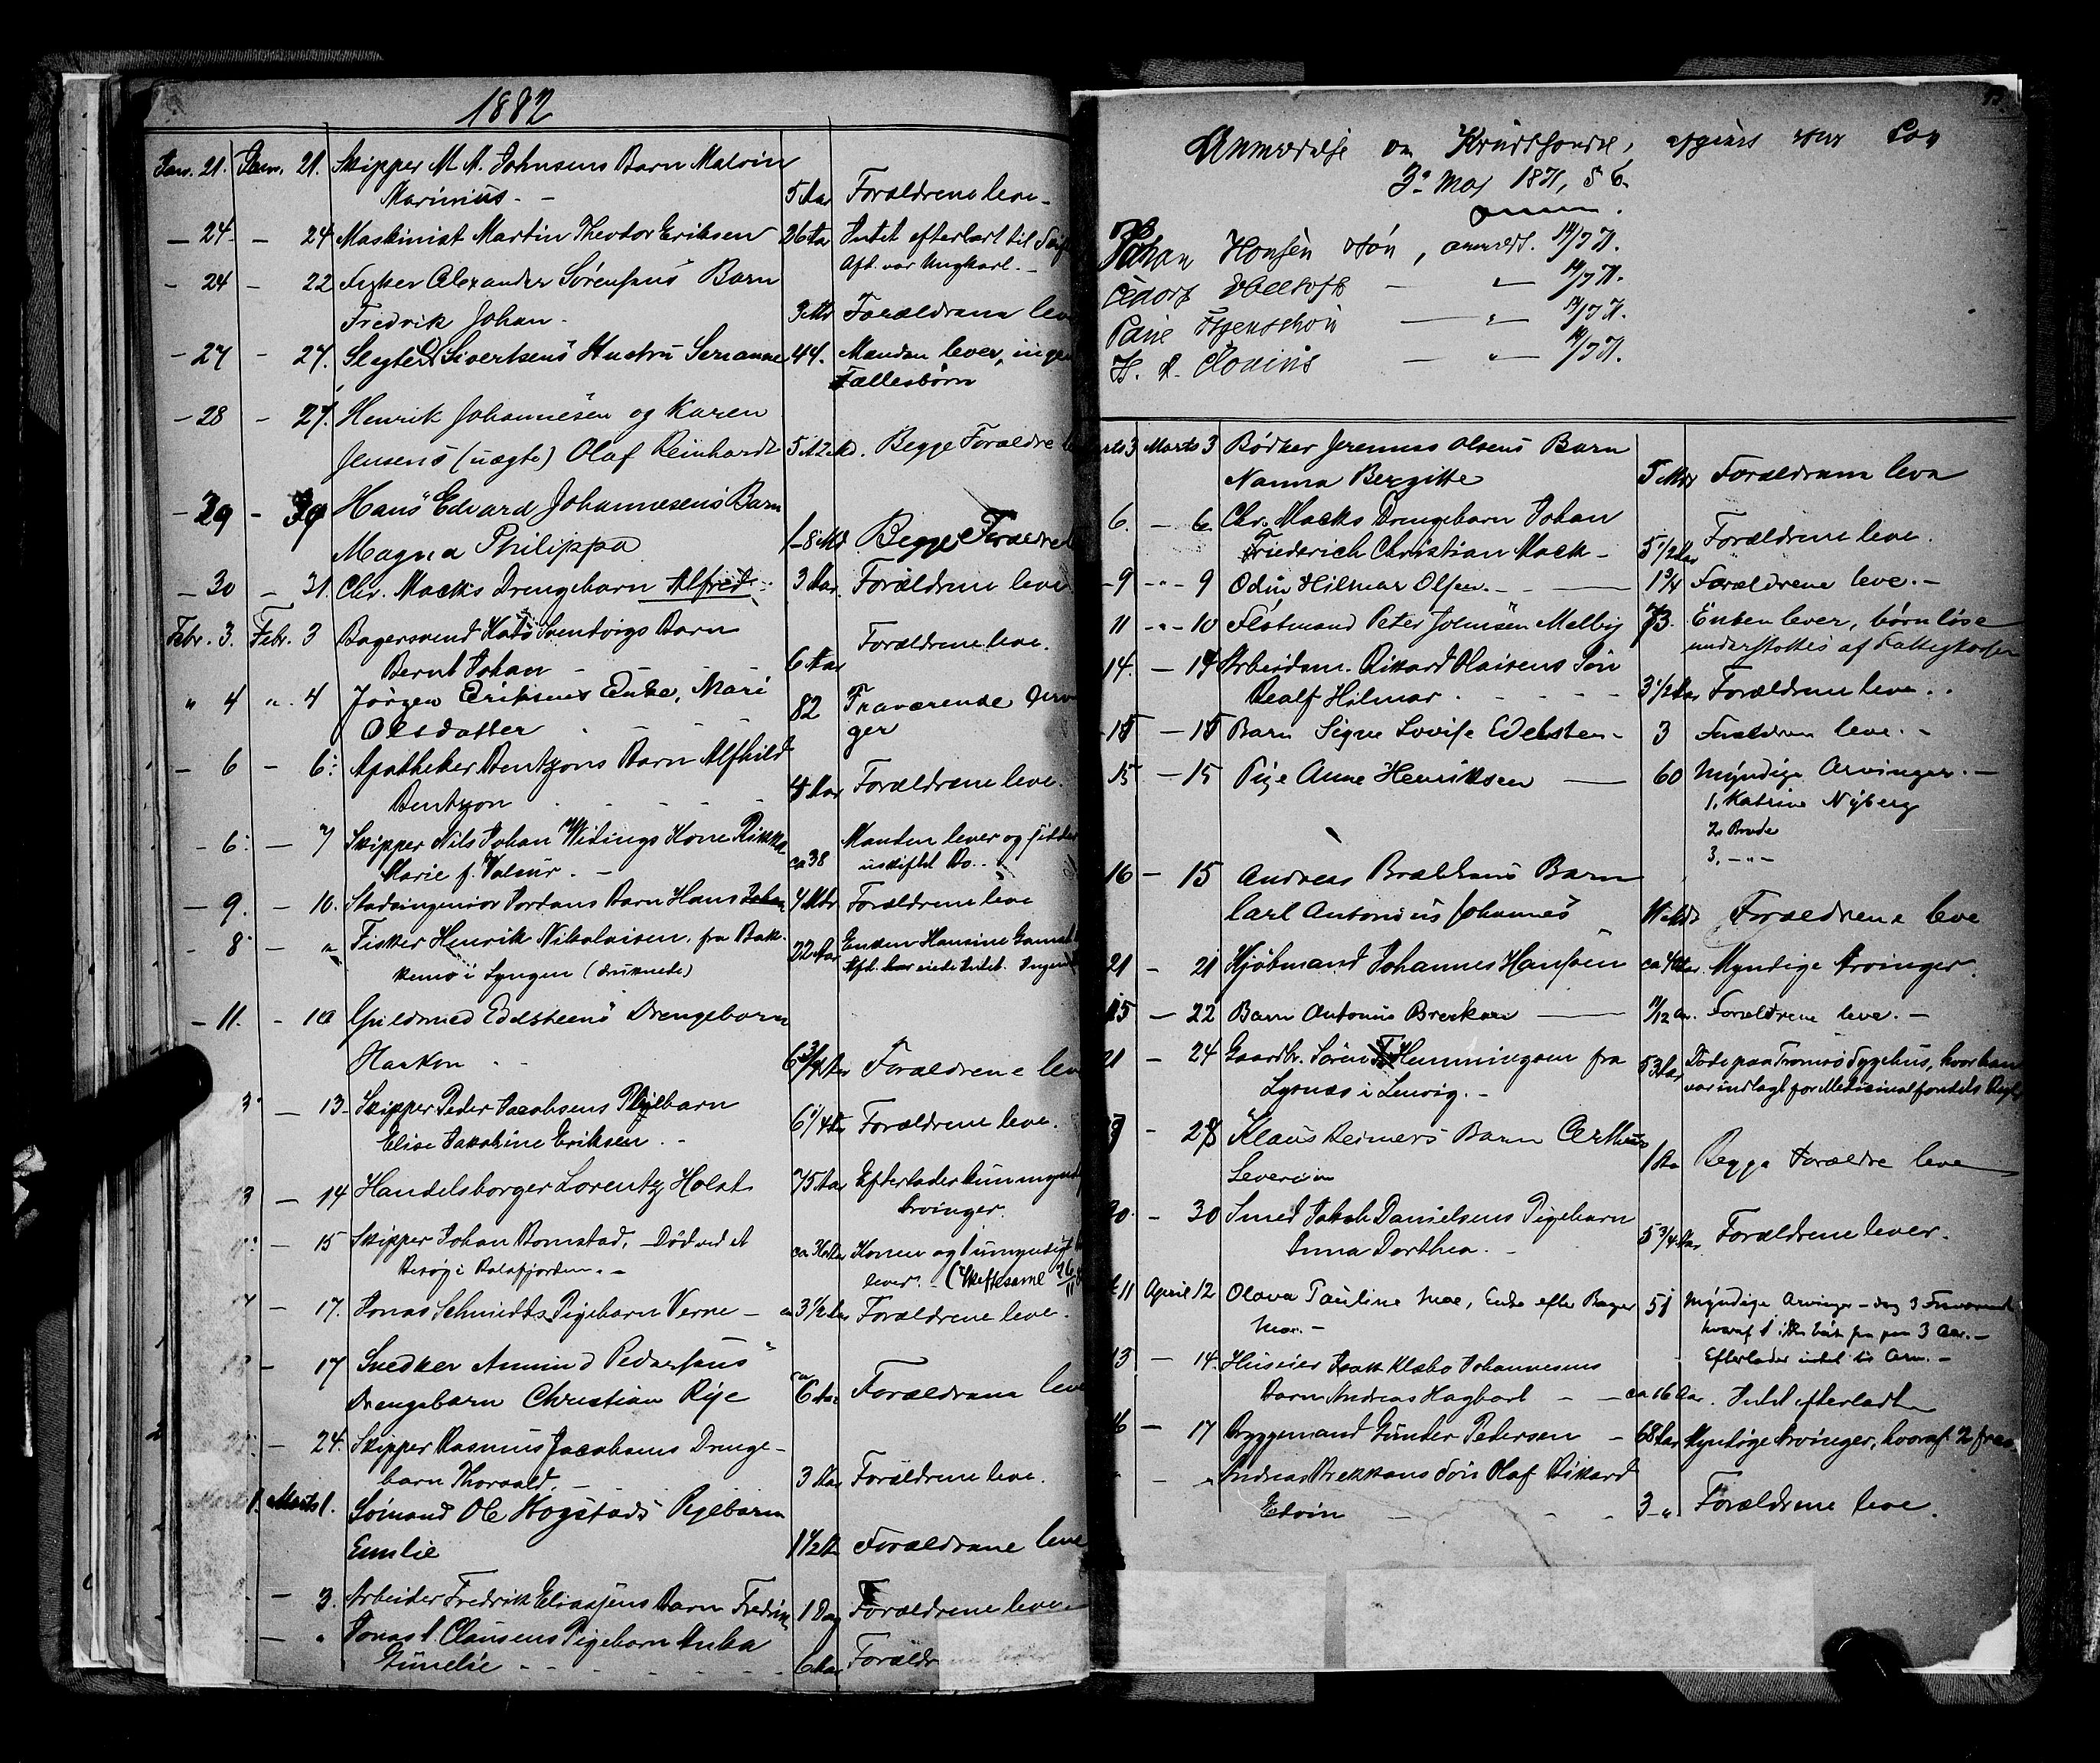 1882
Jan. 21. Jan. 21. Skipper M. A. Johnsens Barn Malvin
Marinius. - 5 Aar Forældrene leve -
- 24 - - 24 Maskinist Martin Theodor Eriksen 26 Aar Intet efterladt til
Afd. var Ungkarl. -
- 24 - 22 Fisker Alexander Sørensens Barn
Fredrik Johan - 3 Md Forældrene leve
- 27 - 27. Sivertsens Hustru Serianne 44. Manden lever, ingen
Fællesbørn
- 28 - 27. Henrik Johannesen og Karen
Jensens (uægte) Olaf Reinhardt 5 A 2 Md. Begge Forældre
- 29 - Hans Edvard Johannesens Barn
Magna Philippa 1-8 Md Begge Forældre
- 30 - 31. Chr. Macks Drengebarn Alfred - 3 Aar. Forældrene leve
Febr. 3. Febr. 3 Bagersvend Barn
Bernt Johan - 6 Aar Forældrene leve.
" 4 ". 4 Jørgen Eriksens Enke, Mari
Olsdatter 82 Fraværende Arvin
ger
- 6 - 6. Apotheker Bentzons Barn Alfhild
Bentzon 4 Aar Forældrene leve.
- 6 - 7 Skipper Nils Johan Widings Kone
Marie f. ca 38 Manden lever og sidder
i uskiftet Bo. -
- 9. - 10. Stadsingenior Jordans Barn Hans Johan 4 Mdr Forældrene leve
- 8 - " Fisker Henrik Nikolaisen, fra Bak-
i Lyngen (druknede) 22 Aar Enken Hansine
- 11. - 10 Guldsmed Edelsteens Drengebarn
Haakon 6 3/4 Aar Forældrene leve
13 - 13 - Skipper Peder Jacobsens Pleiebarn
Elise Jakobine Eriksen. - 6 1/4 Aar Forældrene leve.
13 - 14 Handelsborger Lorentz Holst 75 Aar Efterlader kun myndige
Arvinger.
- 15 Skipper Johan Bomstad. - Død ved et
Besøg i Balsfjorden. - Konen og 1 umyndigt
lever. - (Skiftesaml 26/11
17 - 17. Jonas Schmidts Pigebarn Verne - ca 3 1/2 Aar Forældrene leve.
- 17 Snedker Amund Pedersens
Drengebarn Christian Rye ca 6 Aar Forældrene leve
- 24. Skipper Rasmus Jacobsens Drenge-
barn Thorvald. - 3 Aar Forældrene leve.
1. Marts 1. Sømand Ole Høgstads Pigebarn
Emilie 1 1/2 Aar Forældrene leve
- 3. Arbeider Fredrik Eliassens Barn Fredrik 1 Dag Forældrene leve.
- " Jonas Clausens Pigebarn Anka
6 Aar Forældrene leve
Anmeldelse om afgivet efter Lov
3. Maj 1871, § 6.
Johan Hansen , anmeldt. 14/7 71.
- " - 14/7 71.
- " - 14/7 71.
- " - 14/7 71.
Marts 3 Marts 3 Bødker Jeremias Olsens Barn
Nanna Bergitte 5 Mdr Forældrene leve
6. - 6 Chr. Macks Drengebarn Johan
Friederich Christian Mack - 5 1/2 Aar Forældrene leve.
- 9 - " - 9 Odin Hilmar Olsen. - 1 3/4 Forældrene leve. -
11 - " - 10 Peter Johnsen Melby 73. Enken lever, børnløse
understøttes af Fattigkassen
14. - 14 Arbeidsm. Rikard Olaisens Søn
Realf Hilmar 3 1/2 Aar Forældrene leve. .
- 15 - 15 Barn Signe Lovise Edelsten - 3 Forældrene leve. -
15 - 15 Pige Anne Henriksen 60 Myndige Arvinger. -
1. Katrine Nyberg
2.
3. - " -
16 - 15 Andreas Brækkans Barn
Carl Antonius Johannes Forældrene leve
21 - 21 Kjøbmand Johannes Hansen Myndige Arvinger.
15 - 22 Barn Antonius Brekkan 11/12 Aar. Forældrene leve. -
21 - 24 Gaardbr. Søren Hemmingsen fra
i Lenvig. - 53 Aar Døde paa Tromsø Sygehus, hvor han
var indlagt for Medicinalfondets Regn
- 28 Klaus Reimers Barn Arthur
Severin 1 Aar Begge Forældre leve
30. - 30 Smed Jakob Danielsens Pigebarn
Anna Dorthea. - 5 3/4 Aar Forældrene lever.
11 April 12 Olava Pauline Moe, Enke efter Bager
Moe. - 51 Myndige Arvinger - dog 3 Fraværende
hvoraf 1 ikke hørt fra paa 3 Aar. -
Efterlader intet til Arv. -
13 - 14. Huseier Isak Klæbo Johannesens
Barn Andreas Hagbart - - ca 16 Aar. Intet efterladt
16 - 17 Bryggemand Gunder Pedersen - 68 Aar Myndige Arvinger, hvoraf 2 frav.
- " Andreas Brekkans Søn Olaf Rikard
Edvin - 3 - " Forældrene leve.